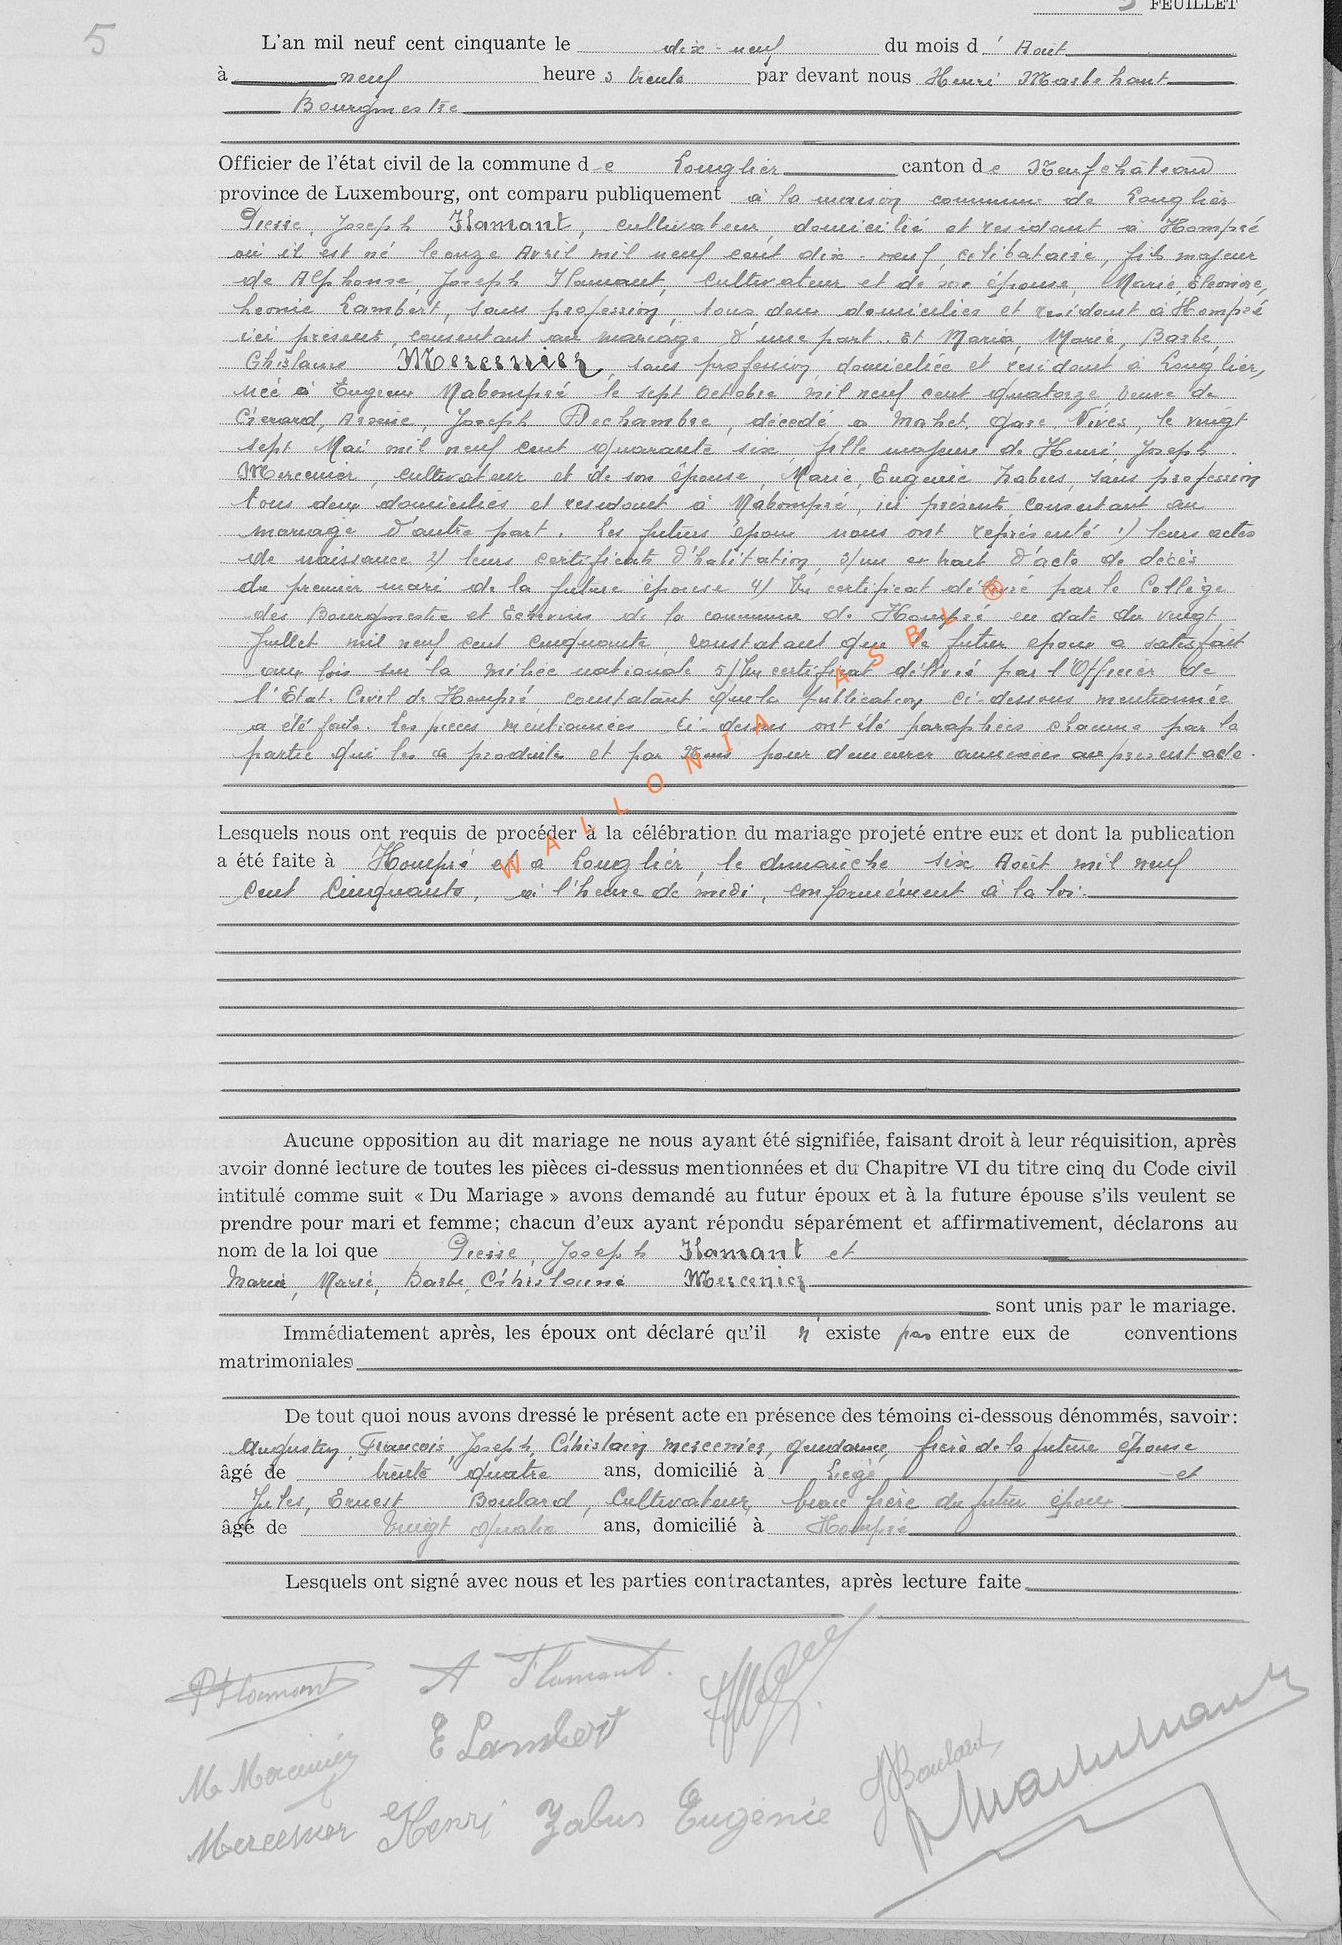 5
5 FEUILLET
L'an mil neuf cent cinquante le dix-neuf du mois d'Août
à neuf heures trente par devant nous Henri
Bourgmestre
Officier de l'état civil de la commune de Longlier canton de Neufchâteau
province de Luxembourg, ont comparu publiquement à la maison commune de Longlier
Pierre, Joseph Flamant, cultivateur, domicilié et résidant à Hompré
où il est né le onze Avril mil neuf cent dix-neuf, célibataire, fils majeur
de Alphonse, Joseph Flamant, cultivateur et de son épouse, Marie, Eléonore,
Léonie Lambert, sans profession, tous deux domiciliés et résidant à Hompré
ici présents, consentant au mariage d'une part. Et Maria, Marie, Barbe,
Ghislaine Mercenier, sans profession, domiciliée et résidant à Longlier,
née à Engreux Mabompré le sept Octobre mil neuf cent quatorze veuve de
Gérard, Arsène, Joseph Dechambre, décédé à Mahet, Gare Vivès, le vingt
sept Mai mil neuf cent quarante six, fille majeure de Henri, Joseph
Mercenier, cultivateur et de son épouse, Marie, Eugénie Zabus, sans profession
tous deux domiciliés et résidant à Mabompré, ici présents, consentant au
mariage d'autre part. Les futurs époux nous ont représenté 1) leurs actes
de naissance 2) leurs certificats d'habitation, 3) un extrait d'acte de décès
du premier mari de la future épouse 4) Un certificat délivré par le Collège
des Bourgmestre et Echevins de la commune de Hompré en date du vingt
Juillet mil neuf cent cinquante, constatant que le futur époux a satisfait
aux lois sur la milice nationale 5) Un certificat délivré par l'Officier de
l'Etat-Civil de Hompré constatant que la publication ci-dessous mentionnée
a été faite. Les pièces mentionnées ci-dessus ont été paraphées chacune par la
partie qui les a produites et par Nous pour demeurer annexées au présent acte.
WALLONIA ASBL ®
Lesquels nous ont requis de procéder à la célébration du mariage projeté entre eux et dont la publication
a été faite à Hompré et à Longlier, le dimanche six Août mil neuf
cent cinquante, à l'heure de midi, conformément à la loi.
Aucune opposition au dit mariage ne nous ayant été signifiée, faisant droit à leur réquisition, après
avoir donné lecture de toutes les pièces ci-dessus mentionnées et du Chapitre VI du titre cinq du Code civil
intitulé comme suit « Du Mariage » avons demandé au futur époux et à la future épouse s'ils veulent se
prendre pour mari et femme; chacun d'eux ayant répondu séparément et affirmativement, déclarons au
nom de la loi que Pierre, Joseph Flamant et
Maria, Marie, Barbe, Ghislaine Mercenier
sont unis par le mariage.
Immédiatement après, les époux ont déclaré qu'il n'existe pas entre eux de conventions
matrimoniales
De tout quoi nous avons dressé le présent acte en présence des témoins ci-dessous dénommés, savoir:
Augustin, François, Joseph, Ghislain Mercenier, gendarme, frère de la future épouse
âgé de trente quatre ans, domicilié à Liège et
Jules, Ernest Boulard, Cultivateur, beau frère du futur époux
âgé de vingt quatre ans, domicilié à Hompré
Lesquels ont signé avec nous et les parties contractantes, après lecture faite
P Flamant A Flamant.
E Lambert
M Mercenier J Boulard
Mercenier Henri Zabus Eugénie